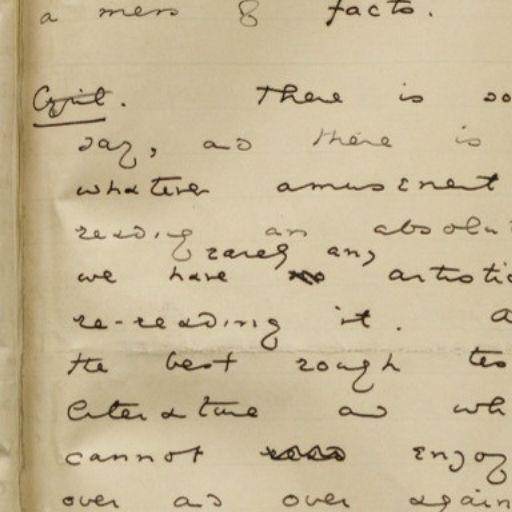 a mess of facts.
Cyril. There is so
say, as there is
whatever amusement
reading an absolut
rarely any
we have artistic
re-reading it. a
the best rough tes
literature as wh
cannot enjoy
over and over again